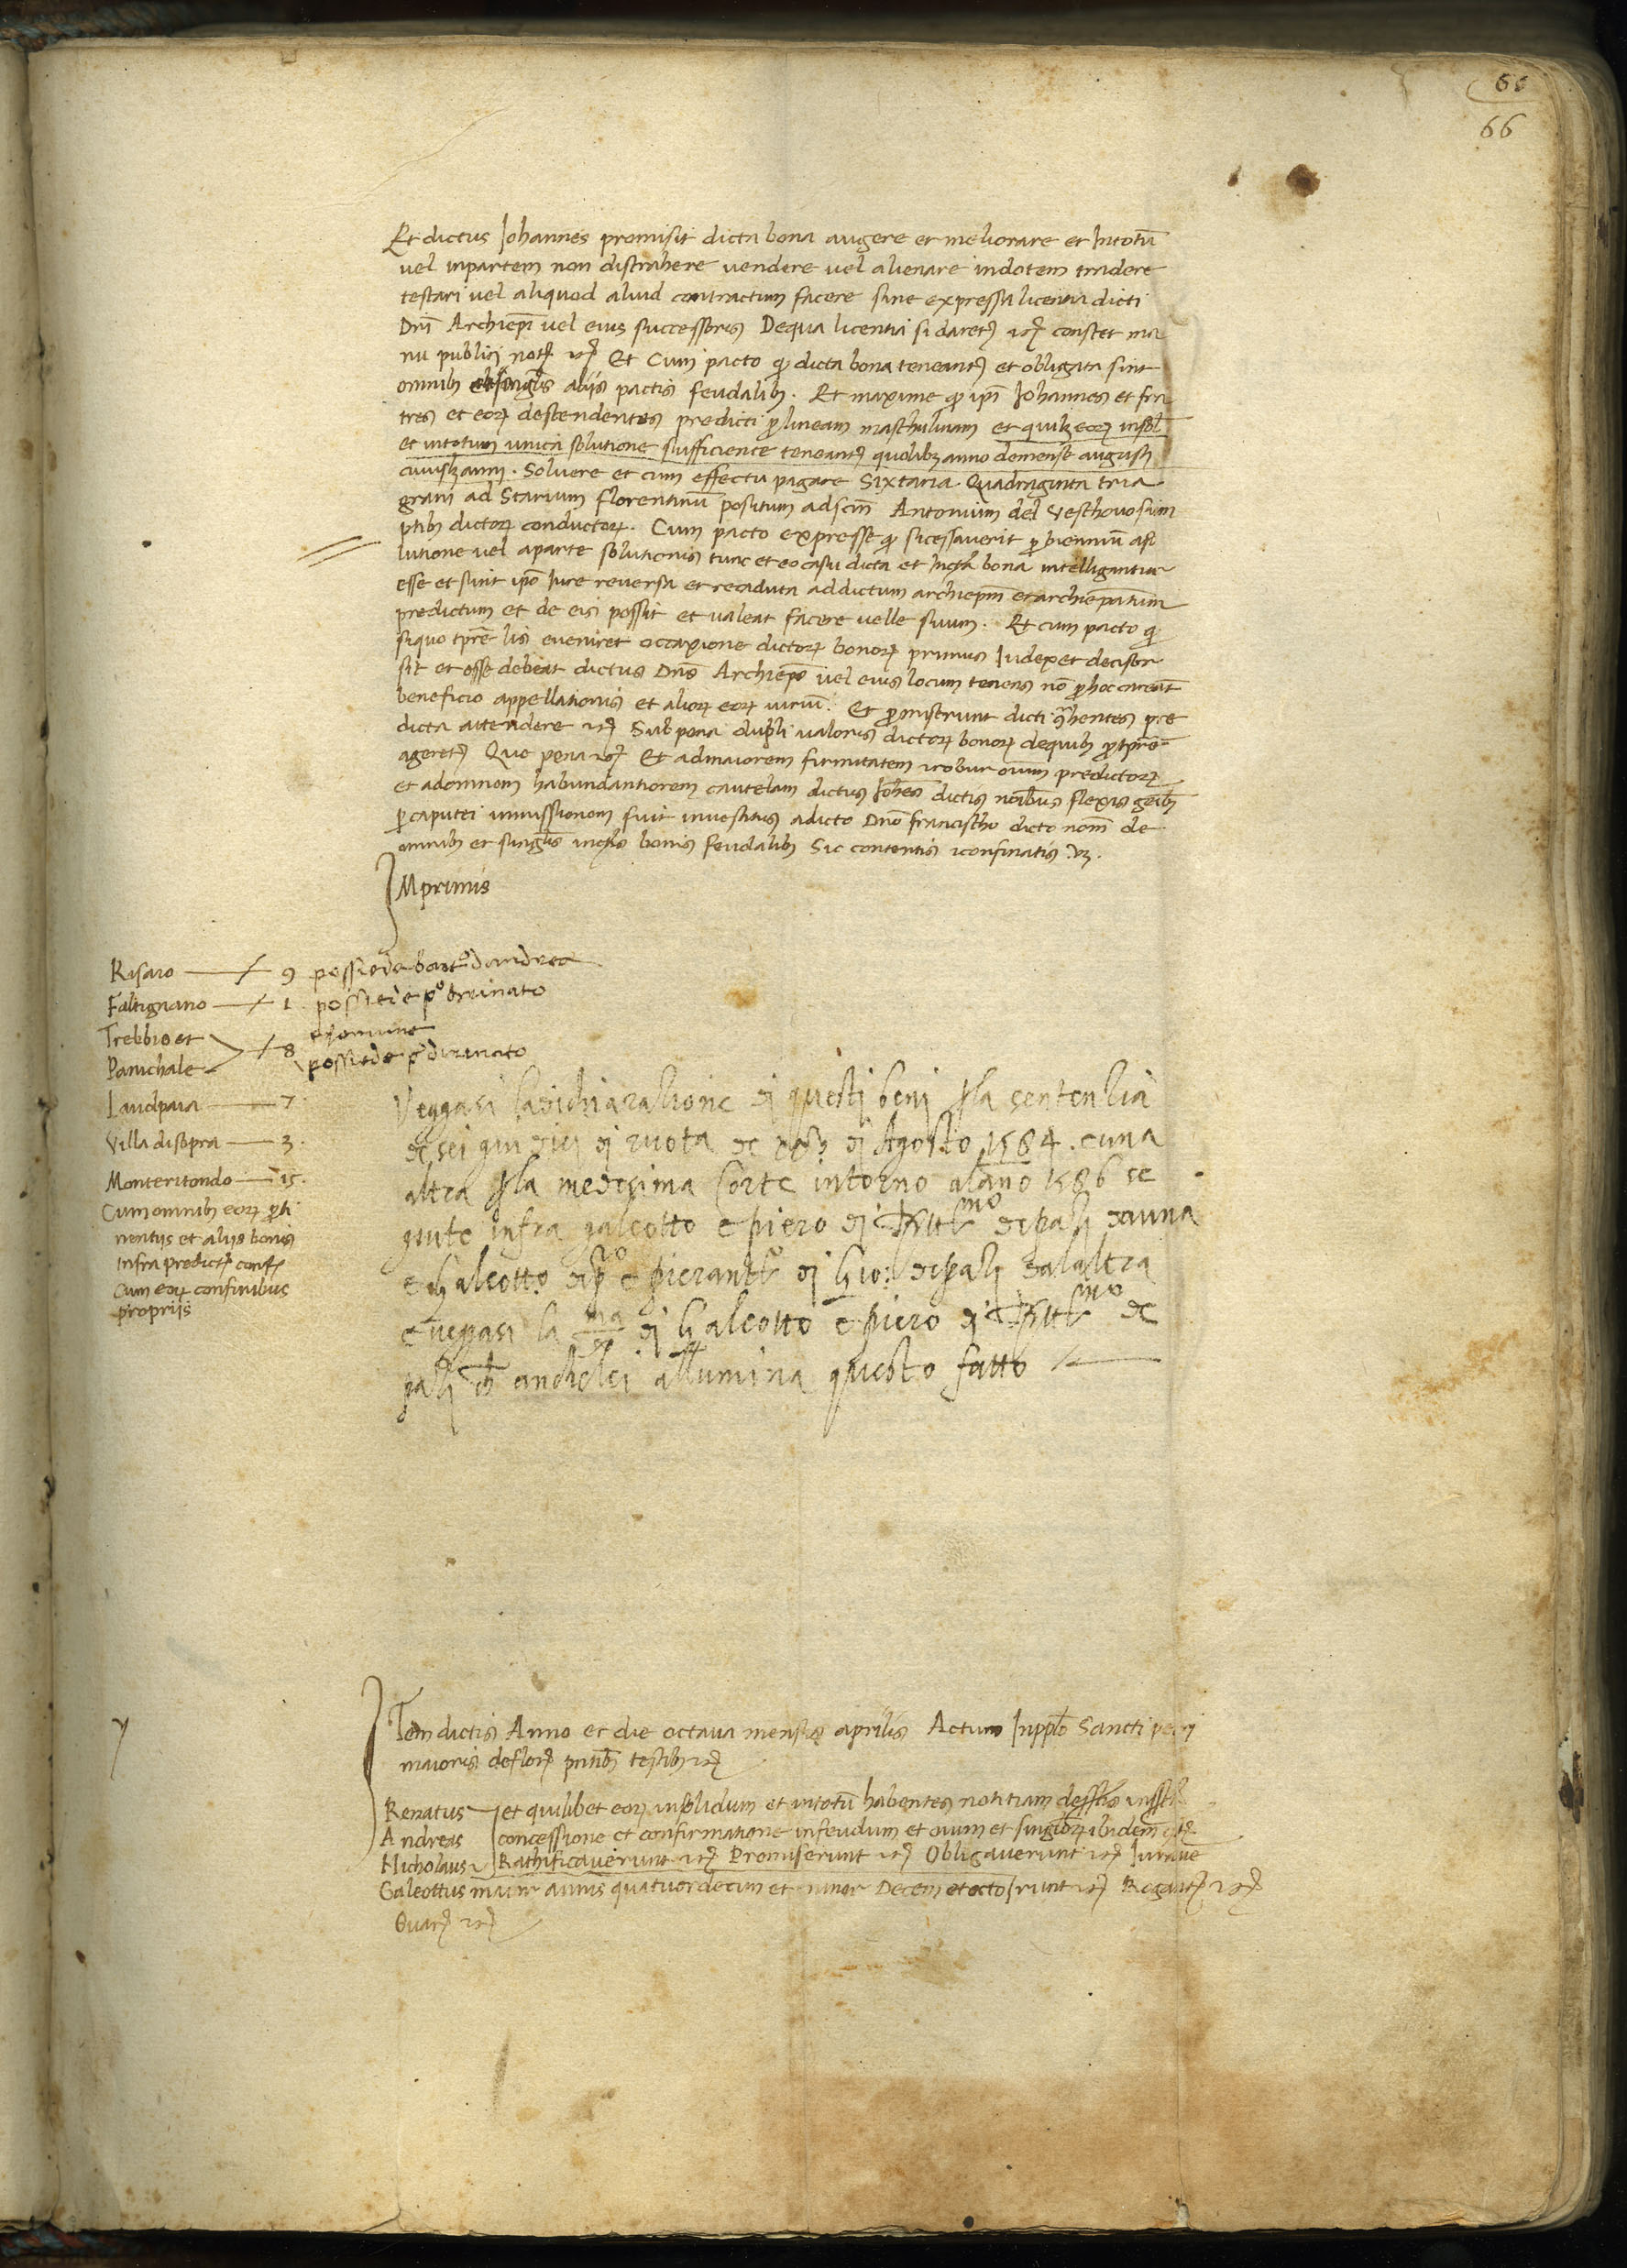 66
66
Et dictus Johannes promisit dicta bona augere et meliorare et Intotũ
vel inpartem non distrahere vendere vel alienare indotem tradere
testari vel aliquod aliud contractum facere sine expressa licentia dicti
Dnĩ Archiepĩ vel eius successoris Dequa licentia si daret constet ma
nu publici not Et Cum pacto dicta bona teneant et obligata sint
omnib et singulis aliis pactis feudalib. Et maxime ip̃i Johannes et fra
tres et eoꝝ descendentes predicti ꝑ lineam maschulinam et quilꝫ eoꝝ insol
et intotum unica solutione sufficiente teneant quolibꝫ anno demense augusti
cuiuslꝫ anni. Solvere et cum effectu pagare Sixtaria Quadraginta tria
grani ad Starium florentinũ positum Antonium del Veschovo
ptib dictoꝝ conductoꝝ. Cum pacto expresse si cessaverit ꝑ biennium aso
lutione vel aparte solutionis tunc et eo casu dicta et bona intelligantur
esse et sint ip̃o Iure reversa et recaduta addictum archiep̃m et archiep̃atum
predictum et de eis possit et valeat facere velle suum. Et cum pacto
siquo tp̃re lis eveniret occaxione dictoꝝ bonoꝝ primus Iudex et decisor
sit et esse debeat dictus Dnũs Archiep̃s vel eius locum tenens nõ ꝑ hoc careant
beneficio appellationis et alioꝝ eoꝝ iurium. Et promiserunt dicti pre
dicta attendere Sub pena dupli valoris dictoꝝ bonoꝝ dequib ꝓ tp̃re
ageret Que pena Et admaiorem firmitatem robur oĩum predictoꝝ
et adomnem habundantiorem cautelam dictus Johẽs dictis noĩbus flexis geñib
ꝑ caputei inmissionem fuit investitus adicto Dnõ francischo dicto noĩe de
omnib et singulis bonis feudalib Sic contentis confinatis
IMprimis
Risaro — 9 possiede bart d andrea
Faltignano — 1 possiede
Trebbio et
Panichale — 8
possiede
Landpaia — 7
Villa disopra — 3.
Monteritondo — 15.
Cumomnib eoꝝ ꝑti
nentiis et aliis bonis
Infra predict conf
Cum eoꝝ confinibus
propriis
Veggasi la dichiaratione di questi beni ꝑ la sententia
de sei giudici di ruota de di Agosto 1584. e una
altra ꝑ la medesima Corte intorno al año 1586 se
guite infra galeotto e piero di dauna
e Galeotto e pierant di Gio: dalaltra
e vegasi la di Galeotto e piero di de
anchelei allumina questo fatto
Item dictis Anno et die octava mensis aprilis Actum Inpplõ Sancti petri
maioris deflor testib
Renatus et quilibet eoꝝ insolidum et intotũ habentes notitiam
Andreas concessione et confirmatione infeudum et oĩum et ibidem
Nicholaus Rathificaverunt Promiserunt Obligaverunt Iurave
Galeottus maior annis quatuordecim et minor Decem et octo runt Rogant